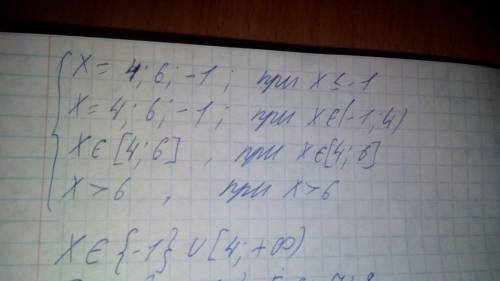 x = 4; 6; -1; при x ≤ -1
x = 4; 6; -1; при x ∈ (-1; 4)
x ∈ [4; 6], при x ∈ [4; 6]
x > 6, при x > 6
x ∈ {-1} ∪ [4; +∞)